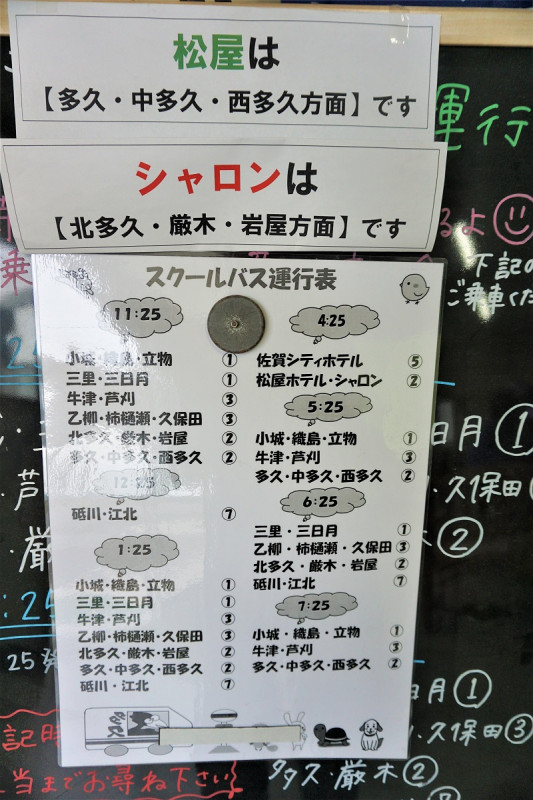 松屋は
【多久・中多久・西多久方面】です
シャロンは
【北多久・厳木・岩屋方面】です
運行
スクールバス運行表
11:25
小城・織島・立物 ①
三里・三日月 ①
牛津・芦刈 ③
乙柳・柿樋瀬・久保田 ③
北多久・厳木・岩屋 ②
多久・中多久・西多久 ②
12:25
砥川・江北 ⑦
1:25
小城・織島・立物 ①
三里・三日月 ①
牛津・芦刈 ③
乙柳・柿樋瀬・久保田 ③
北多久・厳木・岩屋 ②
多久・中多久・西多久 ②
砥川・江北 ⑦
4:25
佐賀シティホテル ⑤
松屋ホテル・シャロン ②
5:25
小城・織島・立物 ①
牛津・芦刈 ③
多久・中多久・西多久 ②
6:25
三里・三日月 ①
乙柳・柿樋瀬・久保田 ③
北多久・厳木・岩屋 ②
砥川・江北 ⑦
7:25
小城・織島・立物 ①
牛津・芦刈 ③
多久・中多久・西多久 ②
るよ
乗
下記の
ご乗車くだ
日月①
芦
久保田
厳
②
25発
日月①
久保田③
記時
当までお尋ね下さい
多久・厳木②